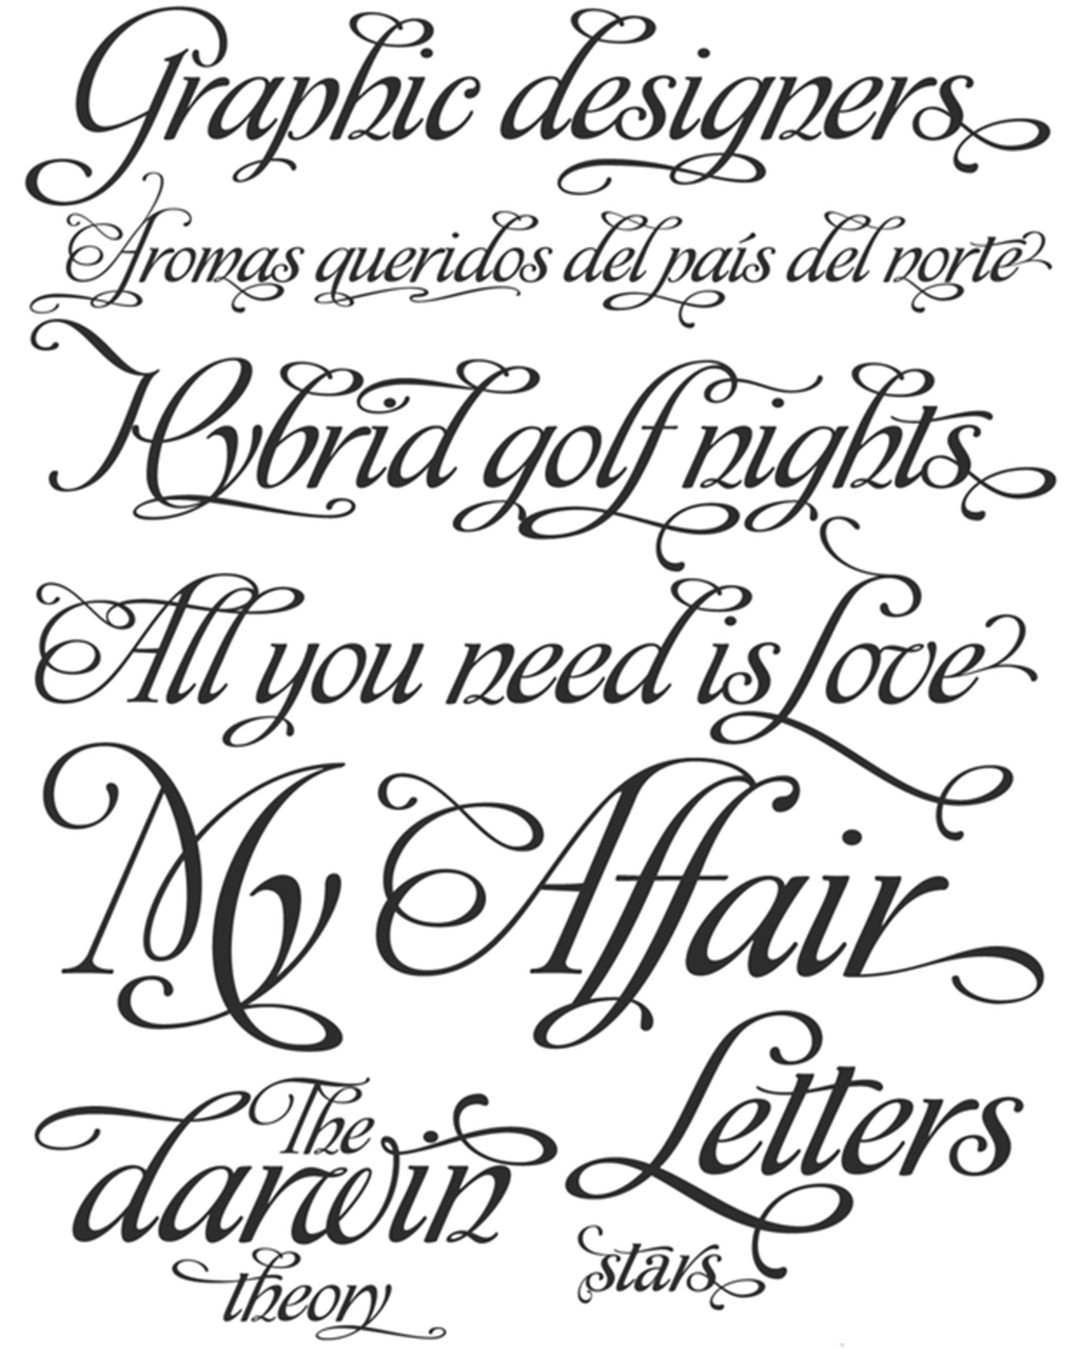 Graphic designers
Aromas queridos del país del norte
Hybrid golf nights
All you need is Love
My Affair
The
darwin
theory
Letters
stars